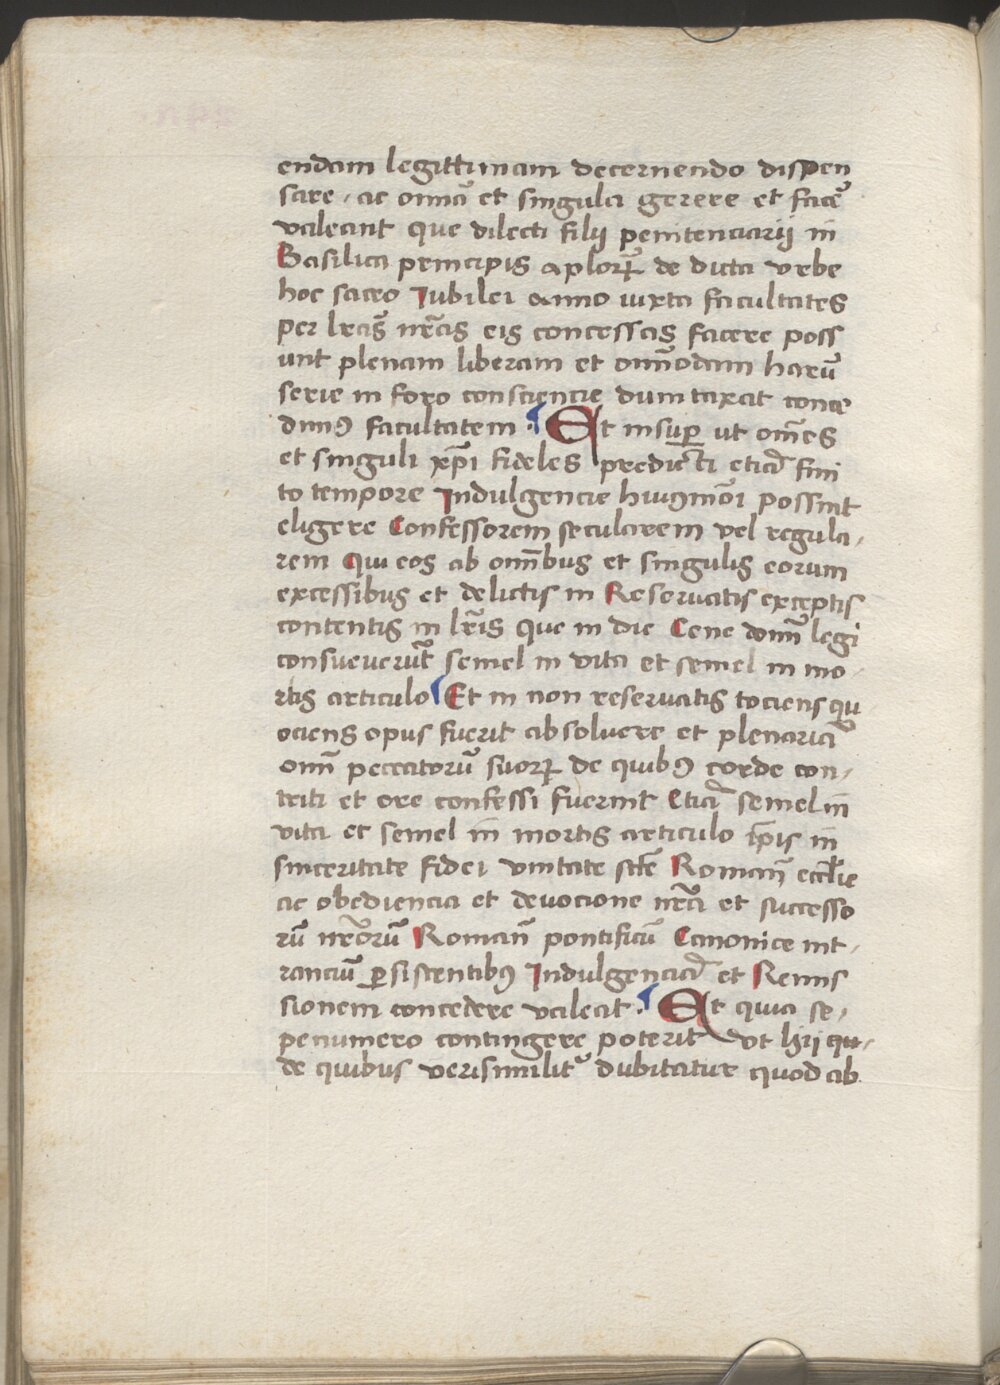 endam legittimam decernendo dispen
sare, ac omīa et singula gerere et facē
valeant que dilecti filij penitenciarij in
Basilica principis aplorꝝ de dicta vrbe
hoc sacro Jubilei anno iuxta facultates
per lr̄as nr̄as eis concessas facere poss
unt plenam liberam et om̄imodam harū
serie in foro consciencie dumtaxat conce
dimꝰ facultatem . Et insuꝑ ut om̄es
et singuli xp̄i fideles predicti etiā fini
to tempore Indulgencie huiꝰmōi possint
eligere Confessorem secularem vel regula,
rem Qui eos ab om̄ibus et singulis eorum
excessibus et delictis in Reseruatis exceptis
contentis in lr̄is que in die Cene domī legi
consueuerūt semel in vita et semel in mo,
rtis articulo Et in non reseruatis tociens qu
ociens opus fuerit absoluere et plenariā
om̄ peccatorū suorꝝ de quibꝰ corde con,
triti et ore confessi fuerint Etiā semel in
vita et semel in mortis articulo ip̄is in
sinceritate fidei vnitate sc̄te Roman̄ eccl̄ie
ac obediencia et deuocione nr̄a et successo
rū nr̄orū Roman̄ pontificū Canonice int,
ranciū ꝑsistentibꝰ Indulgenciā et Remis
sionem concedere valeat . Et quia se,
penumero contingere poterit vt hij qu,
de quibus verisimilitᷣ dubitatur quod ab